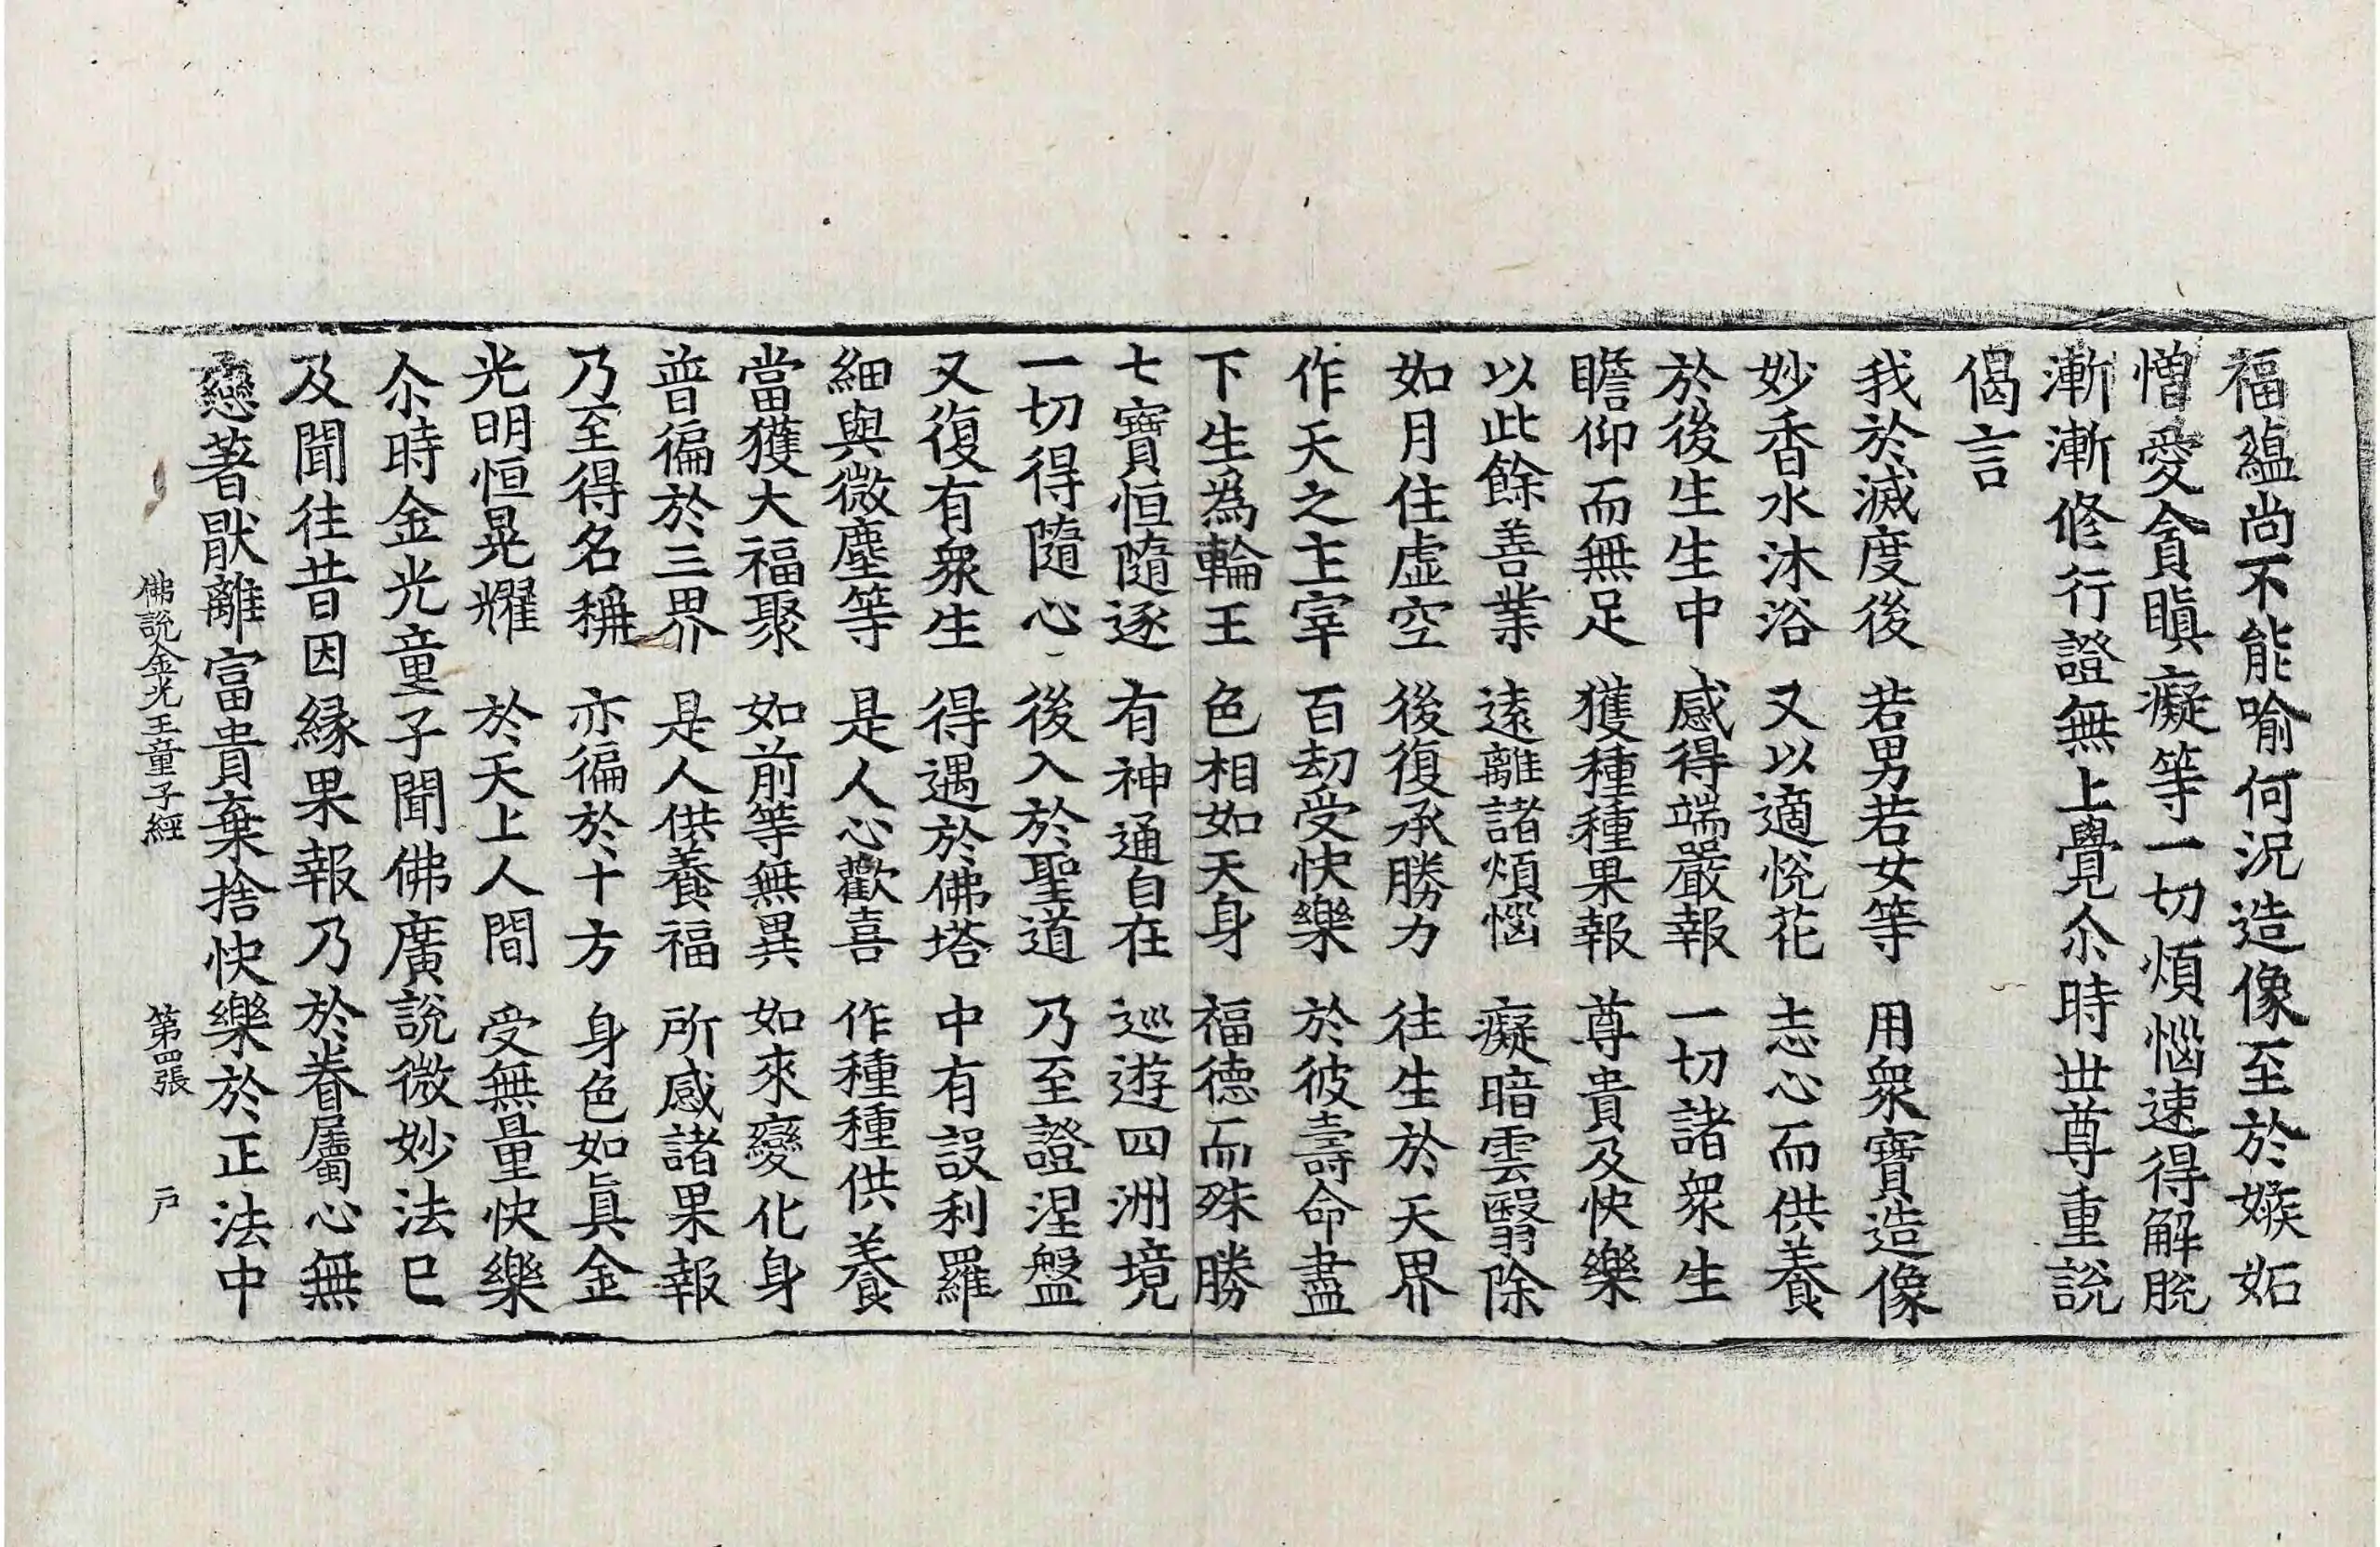 福蘊尚不能喻何況造像至於嫉妬
憎愛貪瞋癡等一切煩惱速得解脫
漸漸修行證無上覺尒時世尊重說
偈言
我於滅度後　若男若女等　用衆寶造像
妙香水沐浴　又以適悅花　志心而供養
於後生生中　感得端嚴報　一切諸衆生
瞻仰而無足　獲種種果報　尊貴及快樂
以此餘善業　遠離諸煩惱　癡暗雲翳除
如月住虛空　後復承勝力　往生於天界
作天之主宰　百劫受快樂　於彼壽命盡
下生為輪王　色相如天身　福德而殊勝
七寶恒隨逐　有神通自在　巡遊四洲境
一切得隨心　後入於聖道　乃至證涅盤
又復有衆生　得遇於佛塔　中有設利羅
細與微塵等　是人心歡喜　作種種供養
當獲大福聚　如前等無異　如來變化身
普徧於三界　是人供養福　所感諸果報
乃至得名稱　亦徧於十方　身色如真金
光明恒晃耀　於天上人間　受無量快樂
尒時金光童子聞佛廣說微妙法已
及聞往昔因緣果報乃於眷屬心無
戀著猒離富貴棄捨快樂於正法中
佛說金光王童子經　第四張　戶